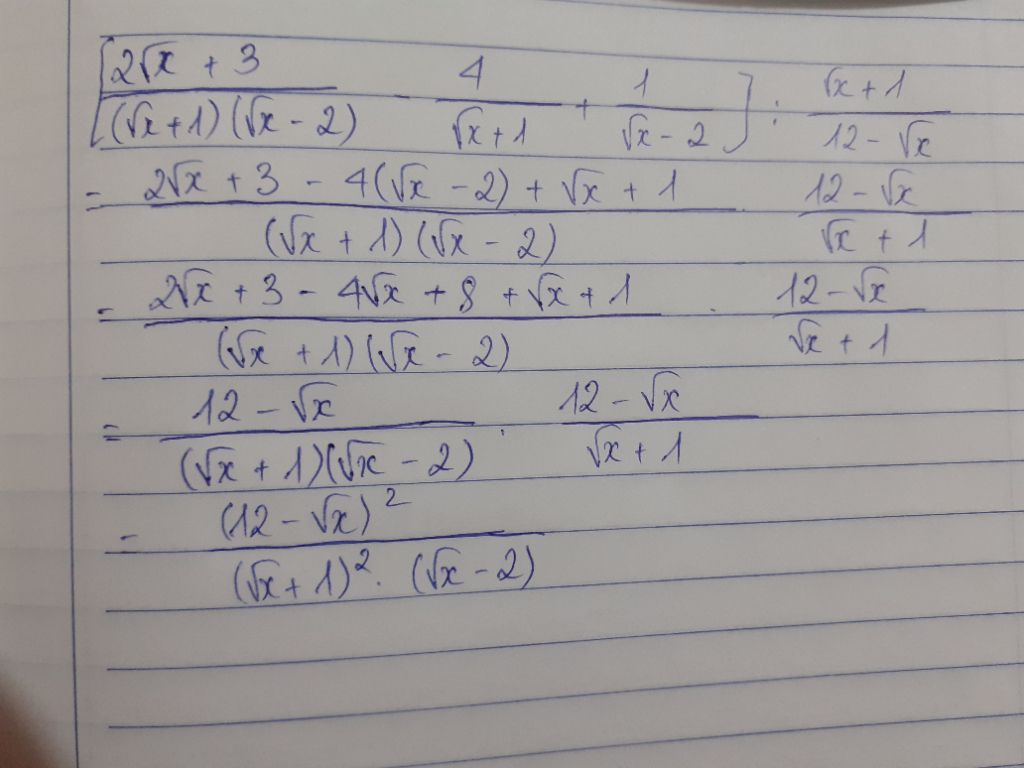 [(2√x + 3)/((√x+1)(√x - 2)) - 4/(√x+1) + 1/(√x - 2)] : (√x+1)/(12 - √x)
= (2√x + 3 - 4(√x - 2) + √x + 1)/((√x + 1)(√x - 2)) . (12 - √x)/(√x + 1)
= (2√x + 3 - 4√x + 8 + √x + 1)/((√x + 1)(√x - 2)) . (12 - √x)/(√x + 1)
= (12 - √x)/((√x + 1)(√x - 2)) . (12 - √x)/(√x + 1)
= (12 - √x)²/((√x + 1)² . (√x - 2))